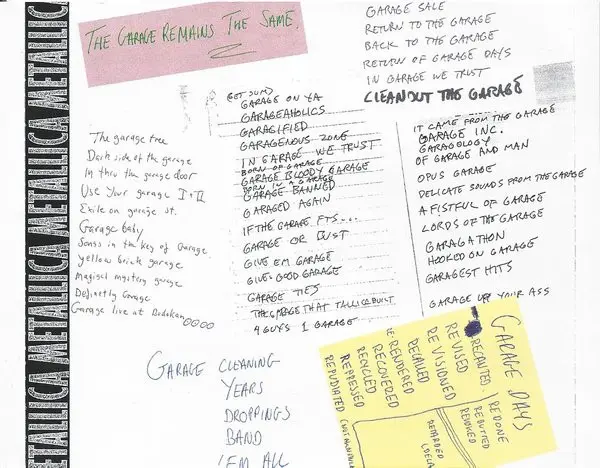 METALLICA METALLICA METALLICA METALLICA
THE GARAGE REMAINS THE SAME.
GARAGE SALE
RETURN TO THE GARAGE
BACK TO THE GARAGE
RETURN OF GARAGE DAYS
IN GARAGE WE TRUST
CLEANOUT THE GARAGE
The garage tree
Dark side of the garage
In thru the garage door
Use Your garage I+II
Exile on garage st.
Garage baby
Songs in the key of Garage
yellow brick garage
Magical mystery garage
Definetly Garage
Garage live at Budokan
GARAGE ON YA
GARAGEAHOLICS
GARAGIFIED
GARAGENOUS ZONE
IN GARAGE WE TRUST
BORN OF GARAGE
GARAGE BLOODY GARAGE
BORN IN A GARAGE
GARAGE BANNED
GARAGED AGAIN
IF THE GARAGE FITS...
GARAGE OR BUST
GIVE EM GARAGE
GIVE GOOD GARAGE
GARAGE TIES
THE GARAGE THAT TALLICA BUILT
4 GUYS 1 GARAGE
IT CAME FROM THE GARAGE
GARAGE INC.
GARAGOLOGY
OF GARAGE AND MAN
OPUS GARAGE
DELICATE SOUNDS FROM THE GARAGE
A FISTFUL OF GARAGE
LORDS OF THE GARAGE
GARAGATHON
HOOKED ON GARAGE
GARAGEST HITS
GARAGE UP YOUR ASS
GARAGE CLEANING
YEARS
DROPPINGS
BAND
'EM ALL
GARAGE DAYS
REDONE
REBUTTED
REVOKED
RECANTED
REVISED
REVISIONED
RECALLED
RE-RENDERED
RECOVERED
RECYCLED
REPRESSED
REPUDIATED
RETARDED